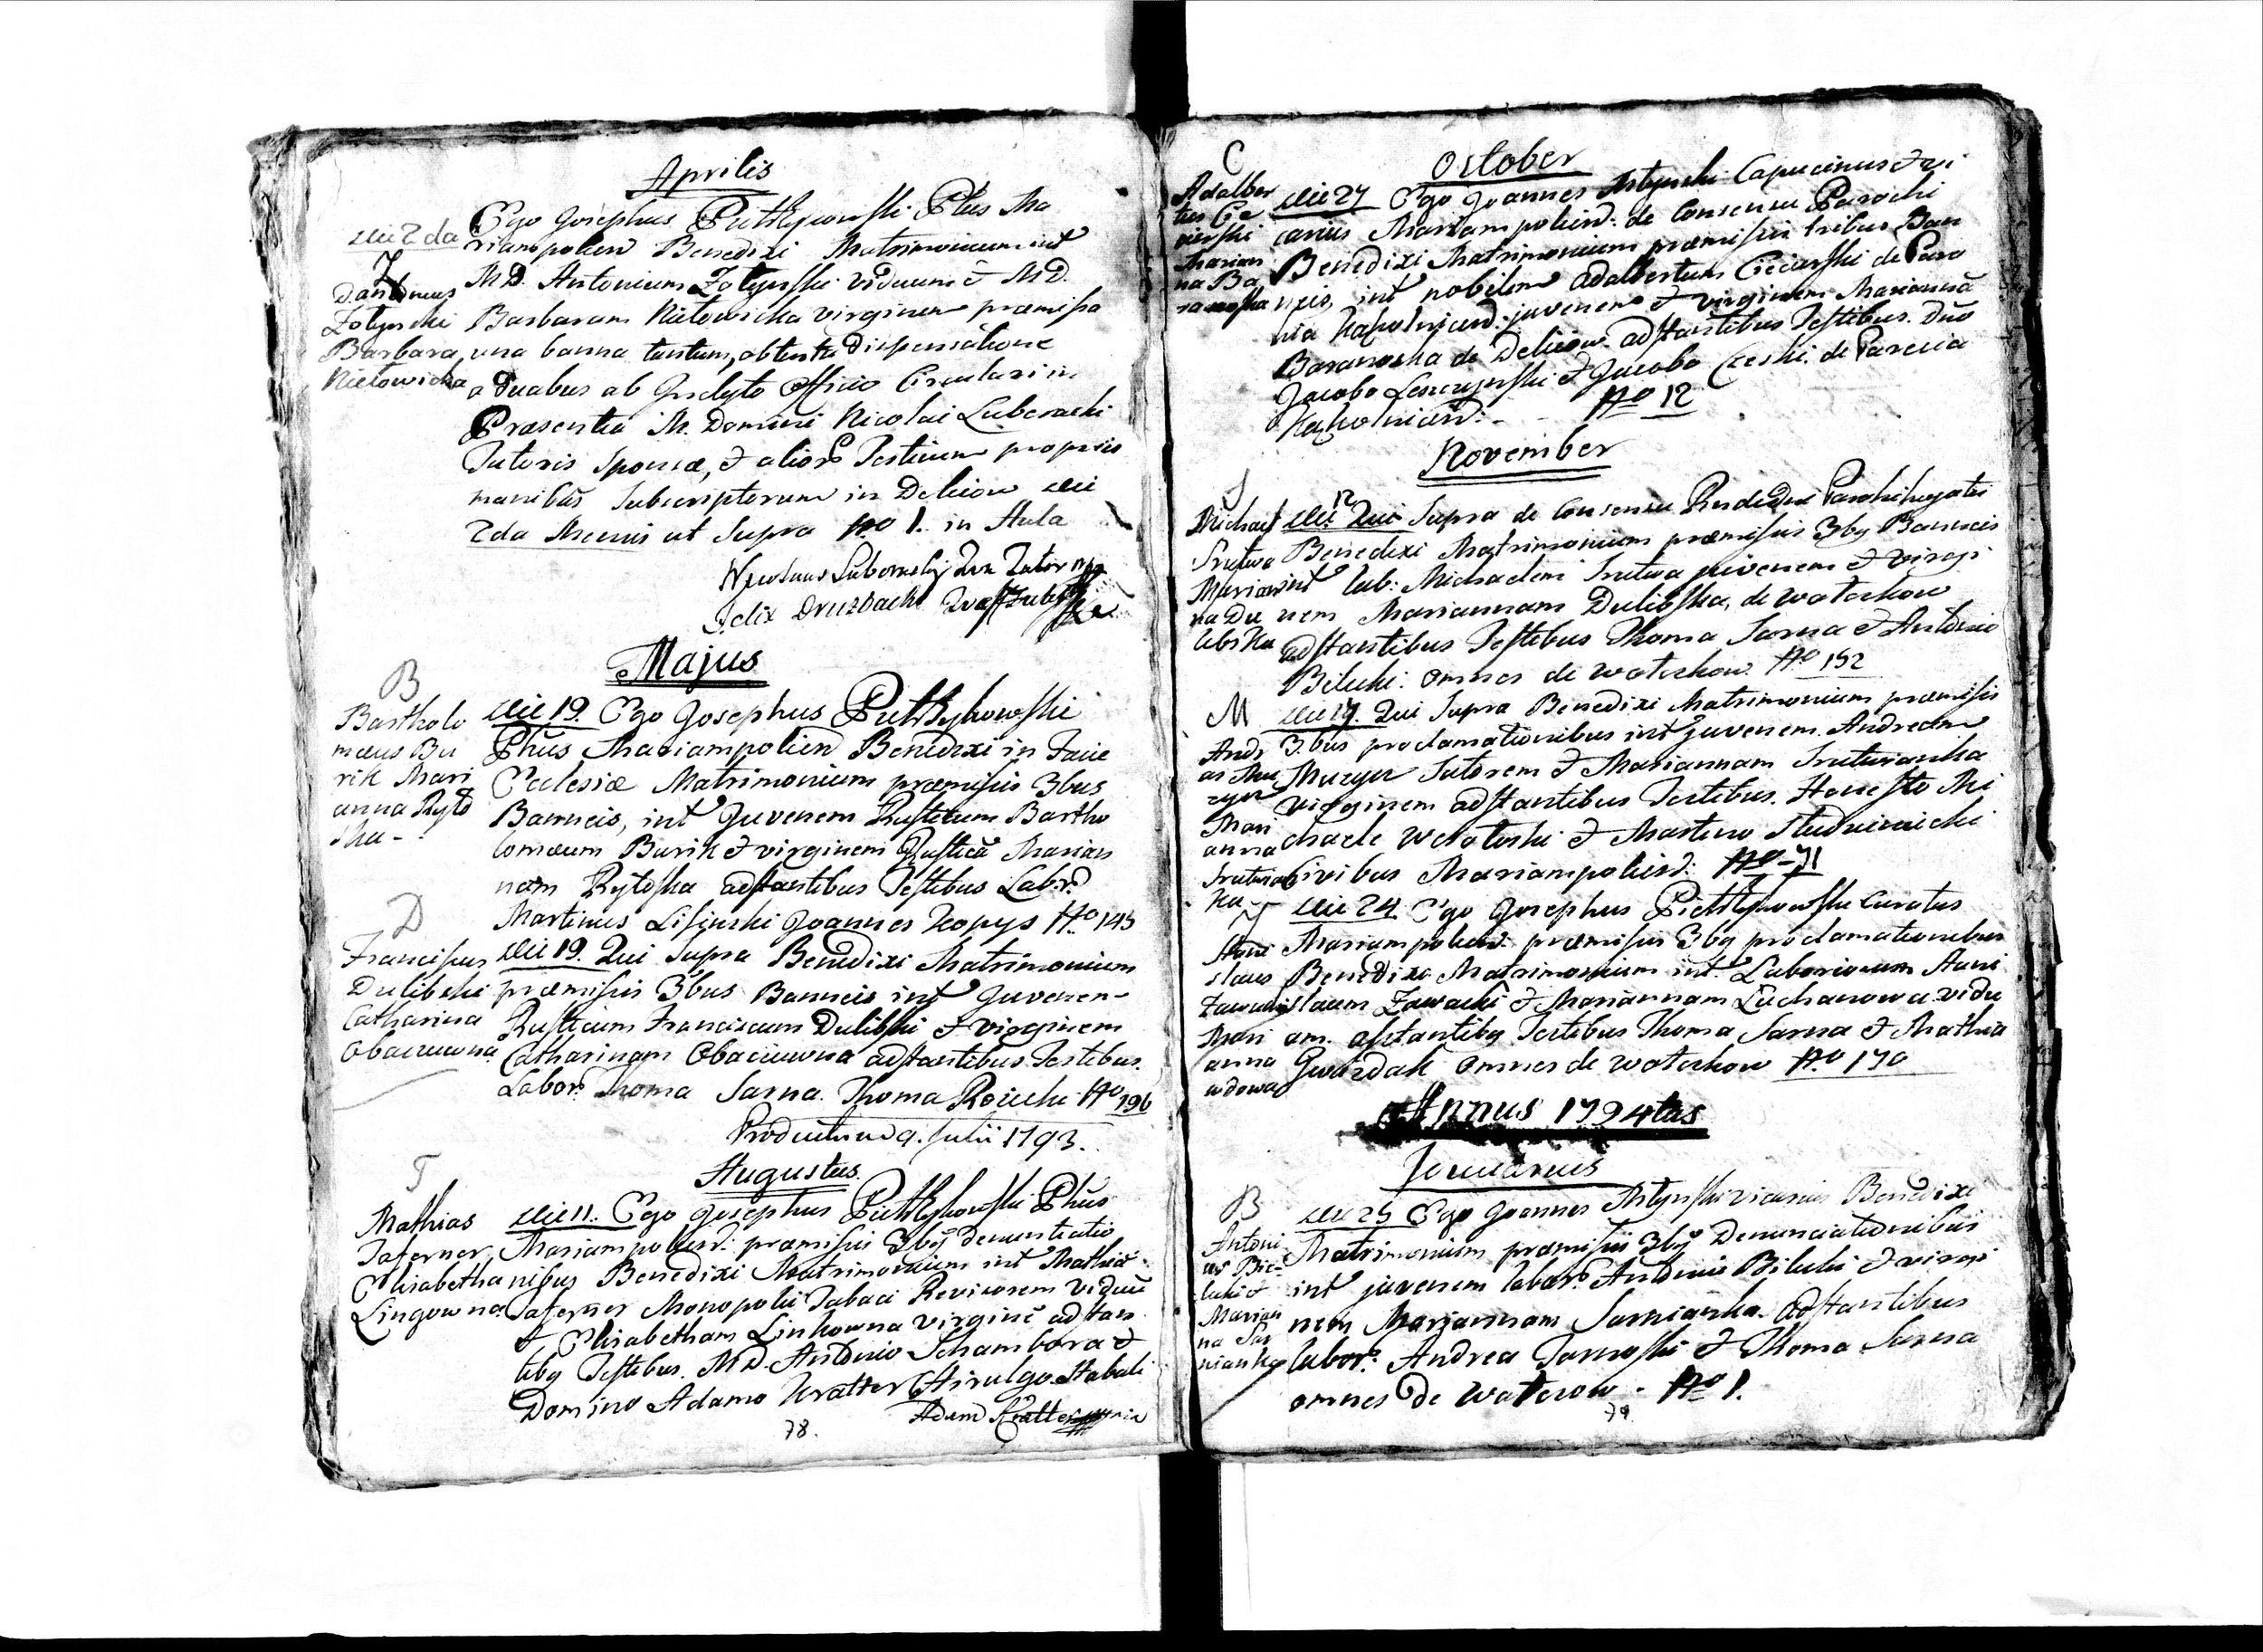 Aprilis
die 2da Ego Josephus Pietkiewski Plus Ma
riampolien Benedixi Matrimonium int
MD. Antonium Zotynski viduum & MD.
Barbaram Nietowicka virginem præmissa
una banna tantum, obtenta dispensatione
a duabus ab Inclyto Officio Circulari in
Præsentia M. Domini Nicolai Luboracki
Tutoris Sponsæ, & alior Testium propriis
manibus Subscriptorum in Deliow die
2da Mensis ut Supra No 1. in Aula
D Antonius
Zotynski
Barbara
Nietowicka
Felix Druzbacki
Majus
B
Bartholo
mæus Bu
rik Mari
anna Ryto
ska -
die 19. Ego Josephus
Phus Mariampolien Benedixi in Facie
Ecclesiæ Matrimonium præmissis 3bus
Bannis, int Juvenem Rusticum Bartho
lomæum Burik & virginem Rustică Marian
nam Rytoska adstantibus Testibus Labor.
Martinus Lisinski Joannes Kopys No 145
D
Franciscus
Dulibski
Catharina
Obaczuwna
die 19. Qui Supra Benedixi Matrimonium
præmissis 3bus Bannis int Juvenem
Rusticum Franciscum Dulibski & virginem
Catharinam Obaciuwna adstantibus Testibus.
Labor. Thoma Sarna. Thoma Roicki No 196
Productum d 9. Julii 1793.
Augustus.
T
Mathias
Taferner
Elisabetha
Lingowna
die 11. Ego Josephus
Mariampolien: præmissis 3bq denuntiatio
nibus Benedixi Matrimonium int Mathiă
Taferner Monopolii Tabaci Revisorem viduŭ
& Elisabetham Linkowna virginĕ adstan
tibq Testibus. MD. Antonio Schambora &
Domino Adamo Kratter Chirulgo Stabali
Adam Kratter
78.
C
Adalber
tus Ce
cierski
Marian
na Ba
ranoska
October
die 27 Ego Joannes Astynski Capucinus & vi
carius Mariampolien: de Consensu Parochi
Benedixi Matrimonium præmissis tribus Ban
nis, int nobilem Adalbertum Ceciarski de Paro
hia Kąkolnicen: juvenem & virginem Mariannă
Baranoska de Deliow adstantibus Testibus. Dno
Jacobo Leszczynski & Jacobo Czeski. de Parocia
Kąkolnicen: - - No 12
November
S
Michael
Srutwa
Marian
na Du
libska
die 12 Qui Supra de Consensu Parochi
Benedixi Matrimonium præmissis 3bq Bannis
int lab: Michaelem Srutwa juvenem & virgi
nem Mariannam Dulibska, de wotczkow
adstantibus Testibus Thoma Sarna & Antonio
Bilicki. omnes de wotczkow No 152
M
Andre
as Mu
zyw
Mari
anna
Srutwian
ka
die 17. Qui Supra Benedixi Matrimonium præmissis
3bus proclamationibus int juvenem Andream
Sutorem & Mariannam Srutwianka
virginem adstantibus Testibus. Honesto Mi
chaele & Martino Studnicicki
Civibus Mariampolien: No - 71
Z
Stani
slaus
Zawacki
Mari
anna
wdowa
die 24. Ego Josephus Curatus
Mariampolien: præmissis 3bq proclamationibus
Benedixi Matrimonium int Laboriosum Stani
slaum Zawacki & Mariannam Luchanowa vidu
am. astantibq Testibus Thoma Sarna & Mathia
Gwozdak omnes de wotczkow No 170
Annus 1794tus
Januarius
B
Antoni
us Bie
licki &
Marian
na Sar
nianka
die 25 Ego Joannes Astynski vicarius Benedixi
Matrimonium præmissis 3bq Denunciationibus
int juvenem labor. Antonium Bilicki & virgi
nem Mariannam Sarnianka. adstantibus
labor: Andrea Tarnoski & Thoma Sarna
omnes de Wotczow - No 1.
79.